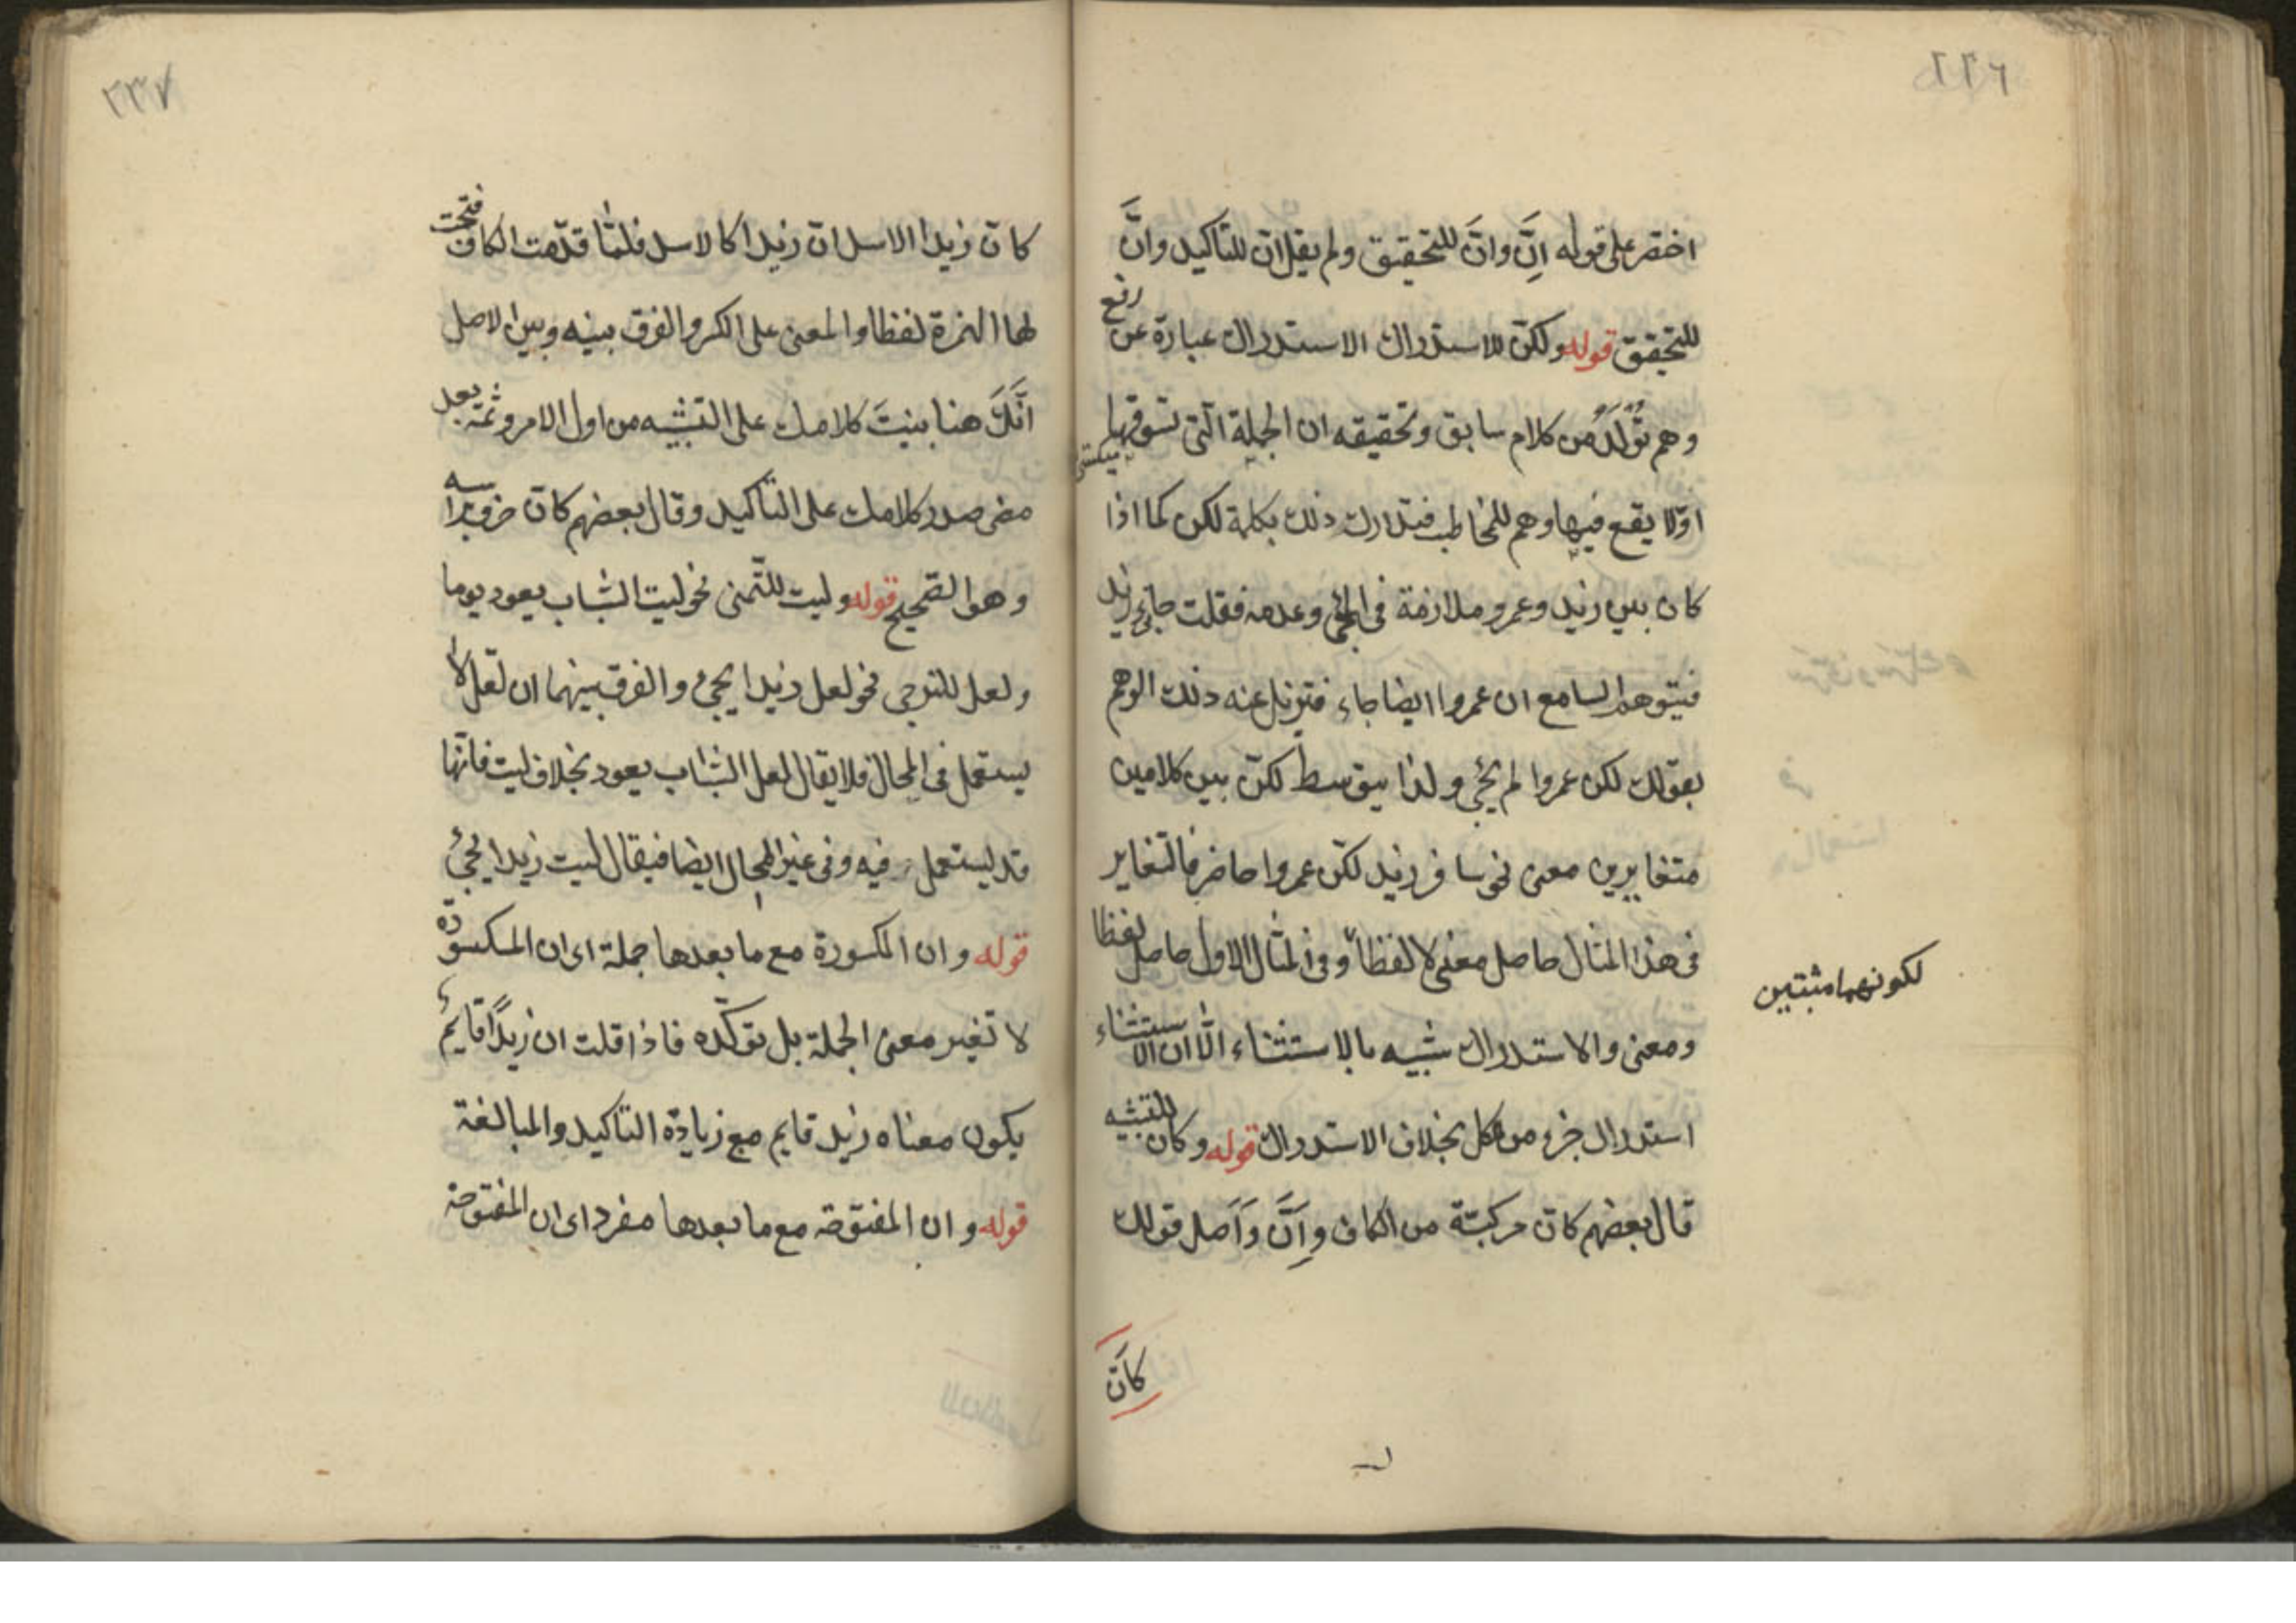 ٢٣٦
اختصر على قوله اِنَّ وانَّ للتحقيق ولم يقل ان للتاكيد وانَّ
للتحقيق قوله ولكنّ للاستدراك الاستدراك عبارة عن رفع
وهم تَوَلَّدَ من كلام سابق وتحقيقه ان الجملة الّتى تسوقها
اوّلا يقع فيها وهم للمخاطب فتدارك ذلك بكلمة لكن كما اذا
كان بين زيد وعمرو ملازمة فى المجئ وعدمه فقلت جائنى زيد
فيتوهم السامع ان عمروا ايضا جاء فتزيل عنه ذلك الوهم
بقولك لكن عمروا لم يجئ ولذا يتوسط لكنّ بين كلامين
متغايرين معنى نحو سافر زيد لكنّ عمروا حاضر فالتغاير
فى هذا المثال حاصل معنى لا لفظاً وفى المثال الاول حاصل لفظا
لكونهما مثبتين
ومعنى والاستدراك شبيه بالاستثناء الّا ان الاستثناء
استدراك جزء من كل بخلاف الاستدراك قوله وكان للتشبيه
قال بعضهم كانّ مركبّة من الكاف واِنَّ وَاَصل قولك
كاَنّ
٢٣٧
كانّ زيدا الاسد انّ زيدا كالاسد فلمّا قدّمت الكاف فتحت
لها الهمزة لفظا والمعنى على الكسر والفرق بينه وبين الاصل
انَّكَ هنا بنيتَ كلامك على التشبيه من اول الامر وثمّه بعد
مضى صدر كلامك على التاكيد وقال بعضهم كانّ حرف براسه
وهو الصّحيح قوله وليت للتّمنى نحو ليت الشباب يعود يوما
ولعل للترجى نحو لعل زيدا يجئ والفرق بينهما ان لعّل لا
يستعمل فى المحال فلا يقال لعل الشباب يعود بخلاف ليت فانّها
قد يستعمل فيه وفى غير المحال ايضا فيقال ليت زيدا يجئ
قوله وان المكسورة مع ما بعدها جملة اى ان المكسورة
لا تغير معنى الجملة بل تؤكّده فاذا قلت ان زيداً قايمٌ
يكون معناه زيد قايم مع زيادة التاكيد والمبالغة
قوله وان المفتوحة مع ما بعدها مفرد اى ان المفتوحة